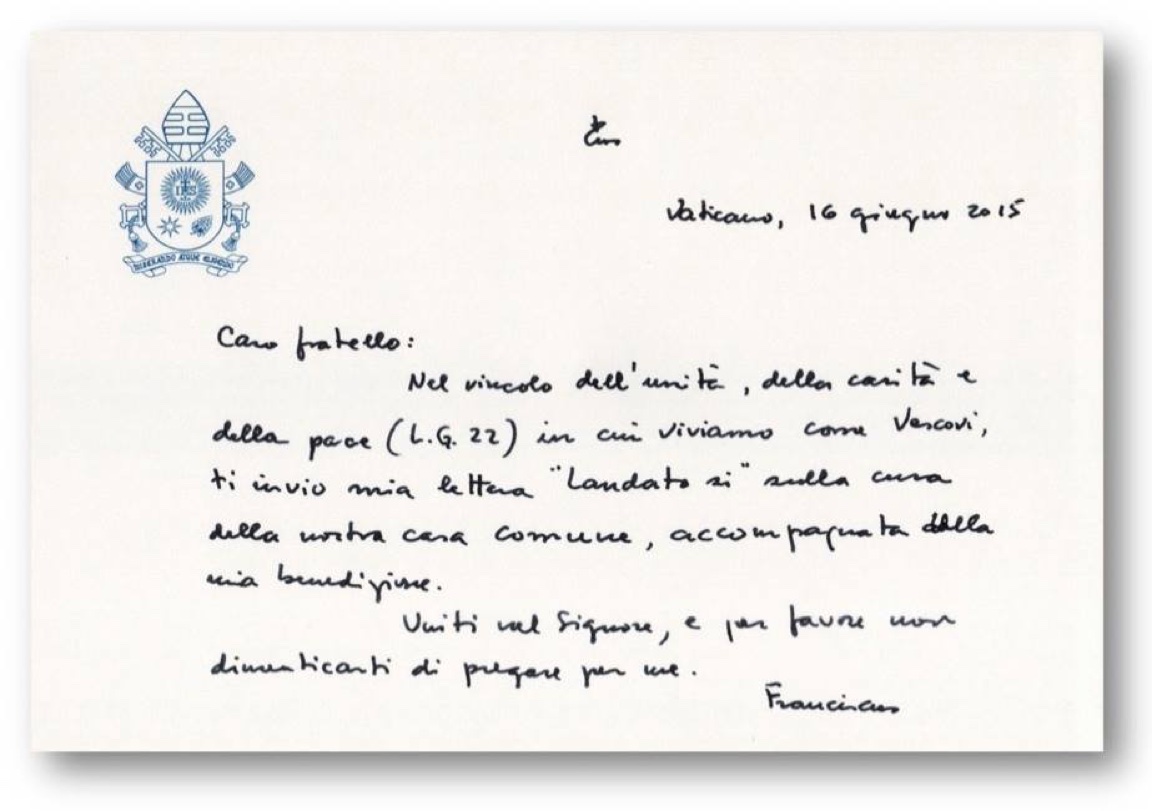 IHS
MISERANDO ATQUE ELIGENDO
Vaticano, 16 giugno 2015
Caro fratello:
Nel vincolo dell'unità, della carità e
della pace (L.G. 22) in cui viviamo come Vescovi,
ti invio mia lettera "Laudato si" sulla cura
della nostra casa comune, accompagnata dalla
mia benedizione.
Uniti nel Signore, e per favore non
dimenticarti di pregare per me.
Franciscus